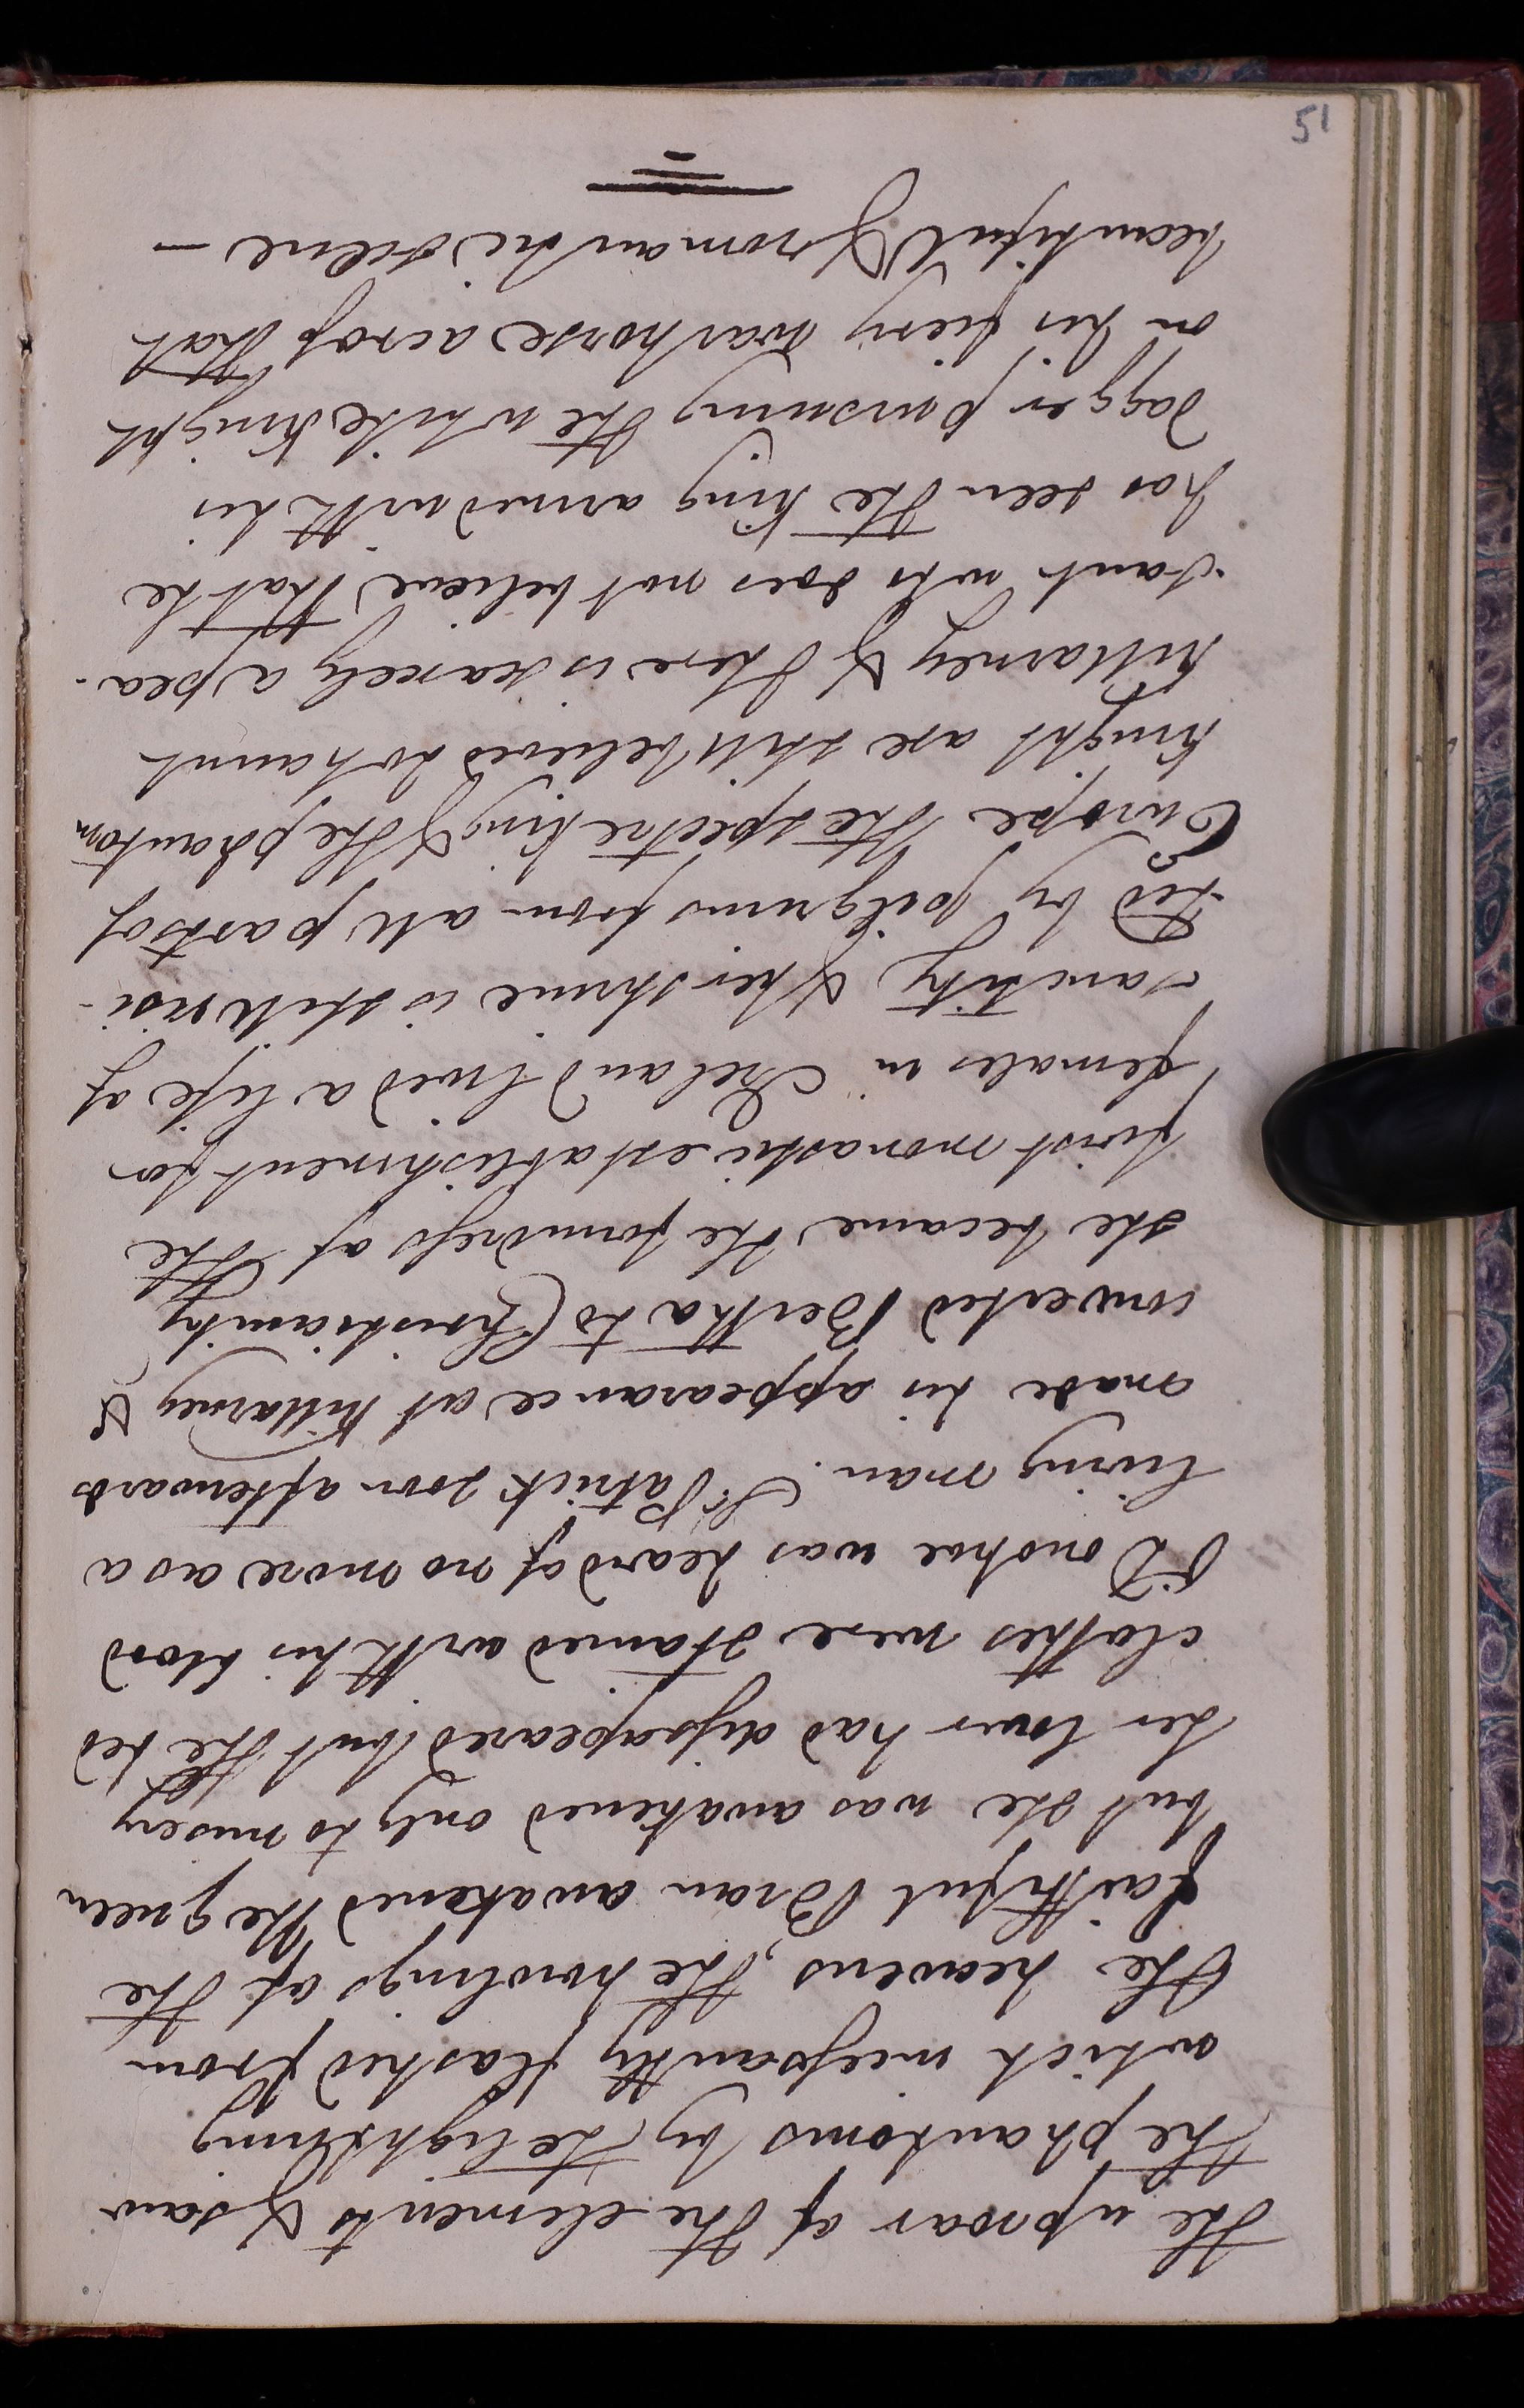 the uproar of the elements & saw
the phantoms by the lightning
which incessantly flashed from
the heavens, the howlings of the
faithful Bran awakened the queen
but she was awakened only to misery
her lover had disapeared but the bed
clothes were stained with his blood
O'Donohue was heard of no more as a
living man. St Patrick soon afterwards
made his appearance at Killarney &
converted Bertha to Christianity
she became the foundress of the
first monastic establishment for
females in Ireland lived a life of
sanctity & her shrine is still visi-
-ted by pilgrims from all parts of
Europe the spectre king & the phantom
knight are still believed to haunt
Killarney & there is scarcely a pea-
-sant who does not believe that he
has seen the king armed with his
dagger pursuing the white knight
on his fiery war horse across that
beautiful & romantic scene —
51